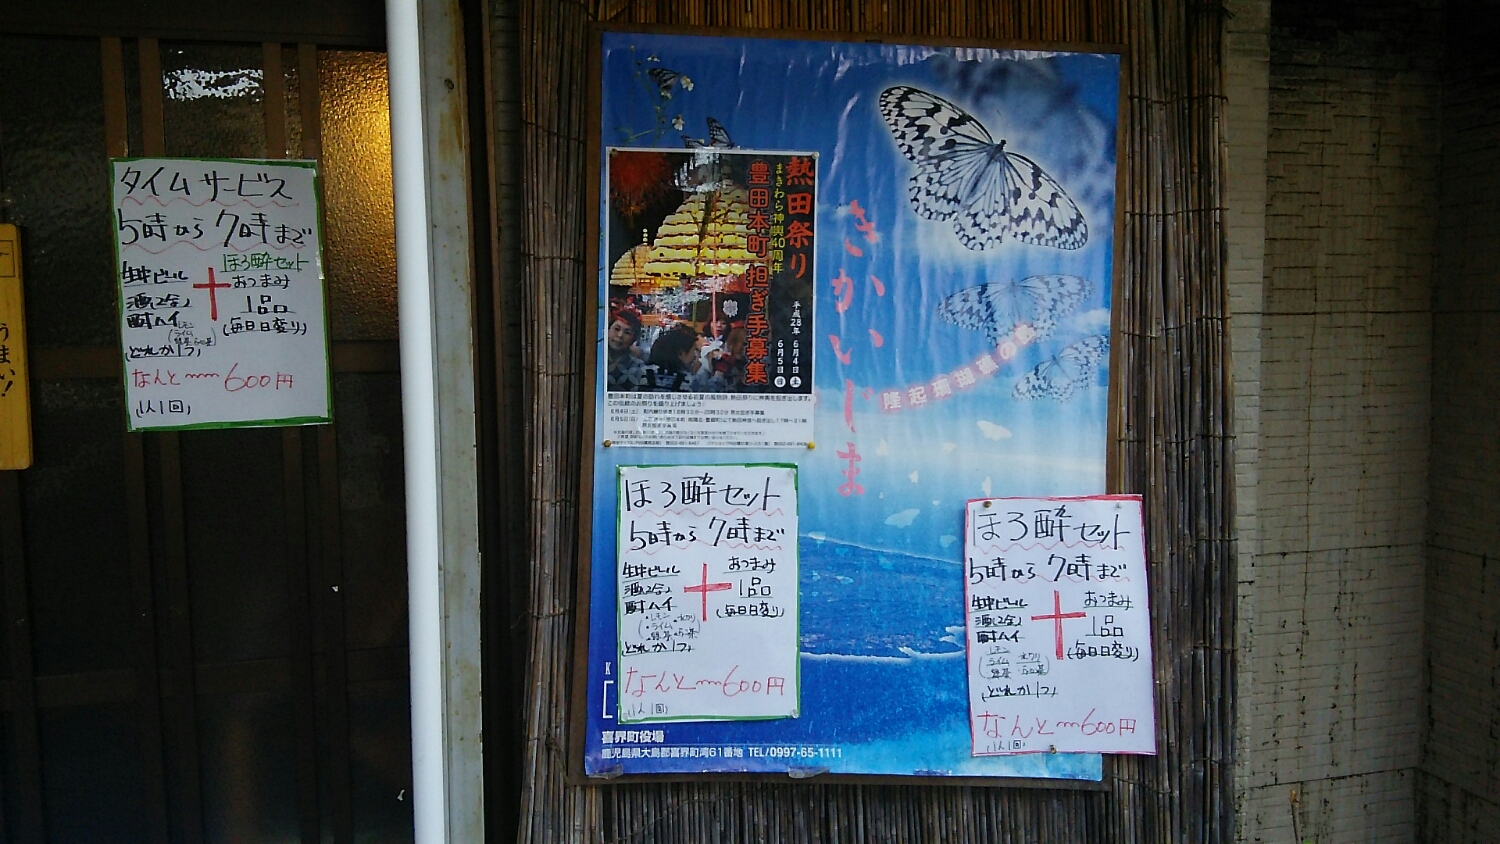 タイムサービス
5時から7時まで
ほろ酔セット
生中ビール
酒(2合)
酎ハイ
レモン
ライム
どれか1つ
+
おつまみ
1品
(毎日日変り)
なんと〜600円
(1人1回)
うまい!
熱田祭り
まきわら神輿40周年
豊田本町担ぎ手募集
平成28年 6月4日土
6月5日日
きかいじま
隆起珊瑚礁の島
ほろ酔セット
5時から7時まで
生中ビール
酒(2合)
酎ハイ
・レモン
・ライム
どれか1つ
+
おつまみ
1品
(毎日日変り)
なんと〜600円
(1人1回)
ほろ酔セット
5時から7時まで
生中ビール
酒(2合)
酎ハイ
レモン
ライム
どれか1つ
+
おつまみ
1品
(毎日日変り)
なんと〜600円
(1人1回)
K
喜界町役場
鹿児島県大島郡喜界町湾61番地 TEL/0997-65-1111